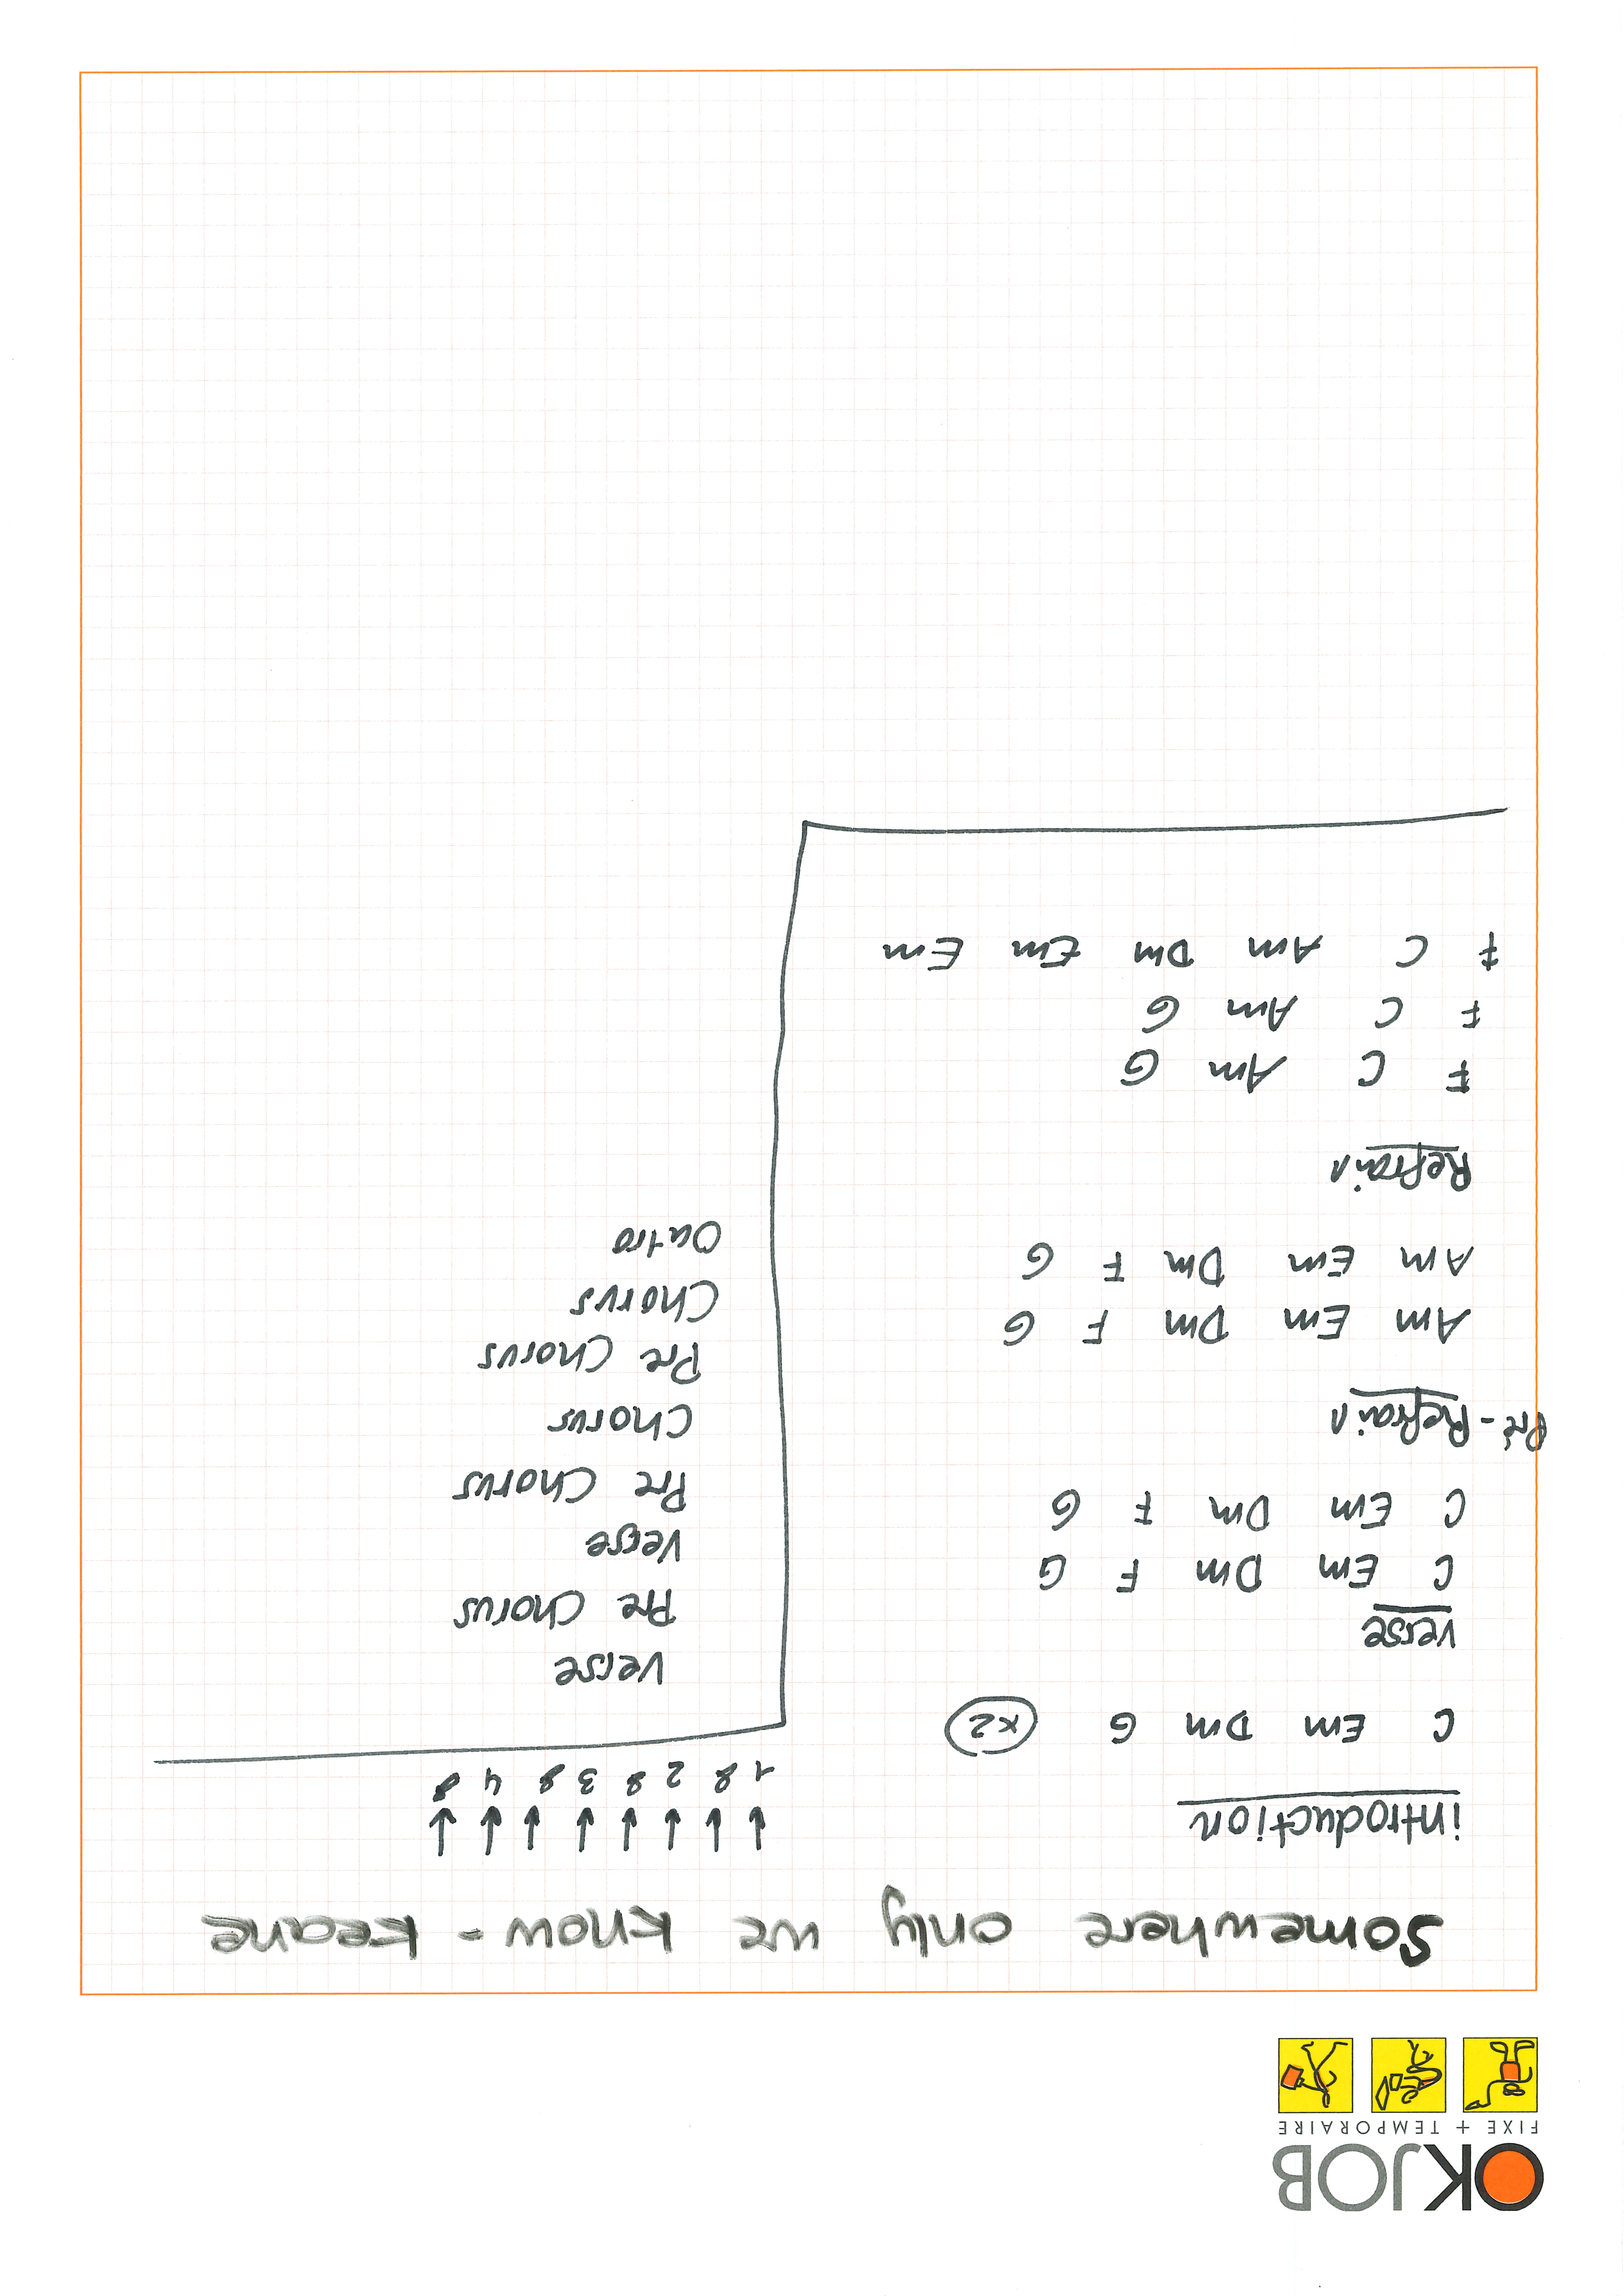 OKJOB
FIXE + TEMPORAIRE
Somewhere only we know - Keane
introduction
C Em Dm G (x2)
verse
C Em Dm F G
C Em Dm F G
Pré-Refrain
Am Em Dm F G
Am Em Dm F G
Refrain
F C Am G
F C Am G
F C Am Dm Em Em
1 & 2 & 3 & 4 &
Verse
Pre Chorus
Verse
Pre Chorus
Chorus
Pre Chorus
Chorus
Outro